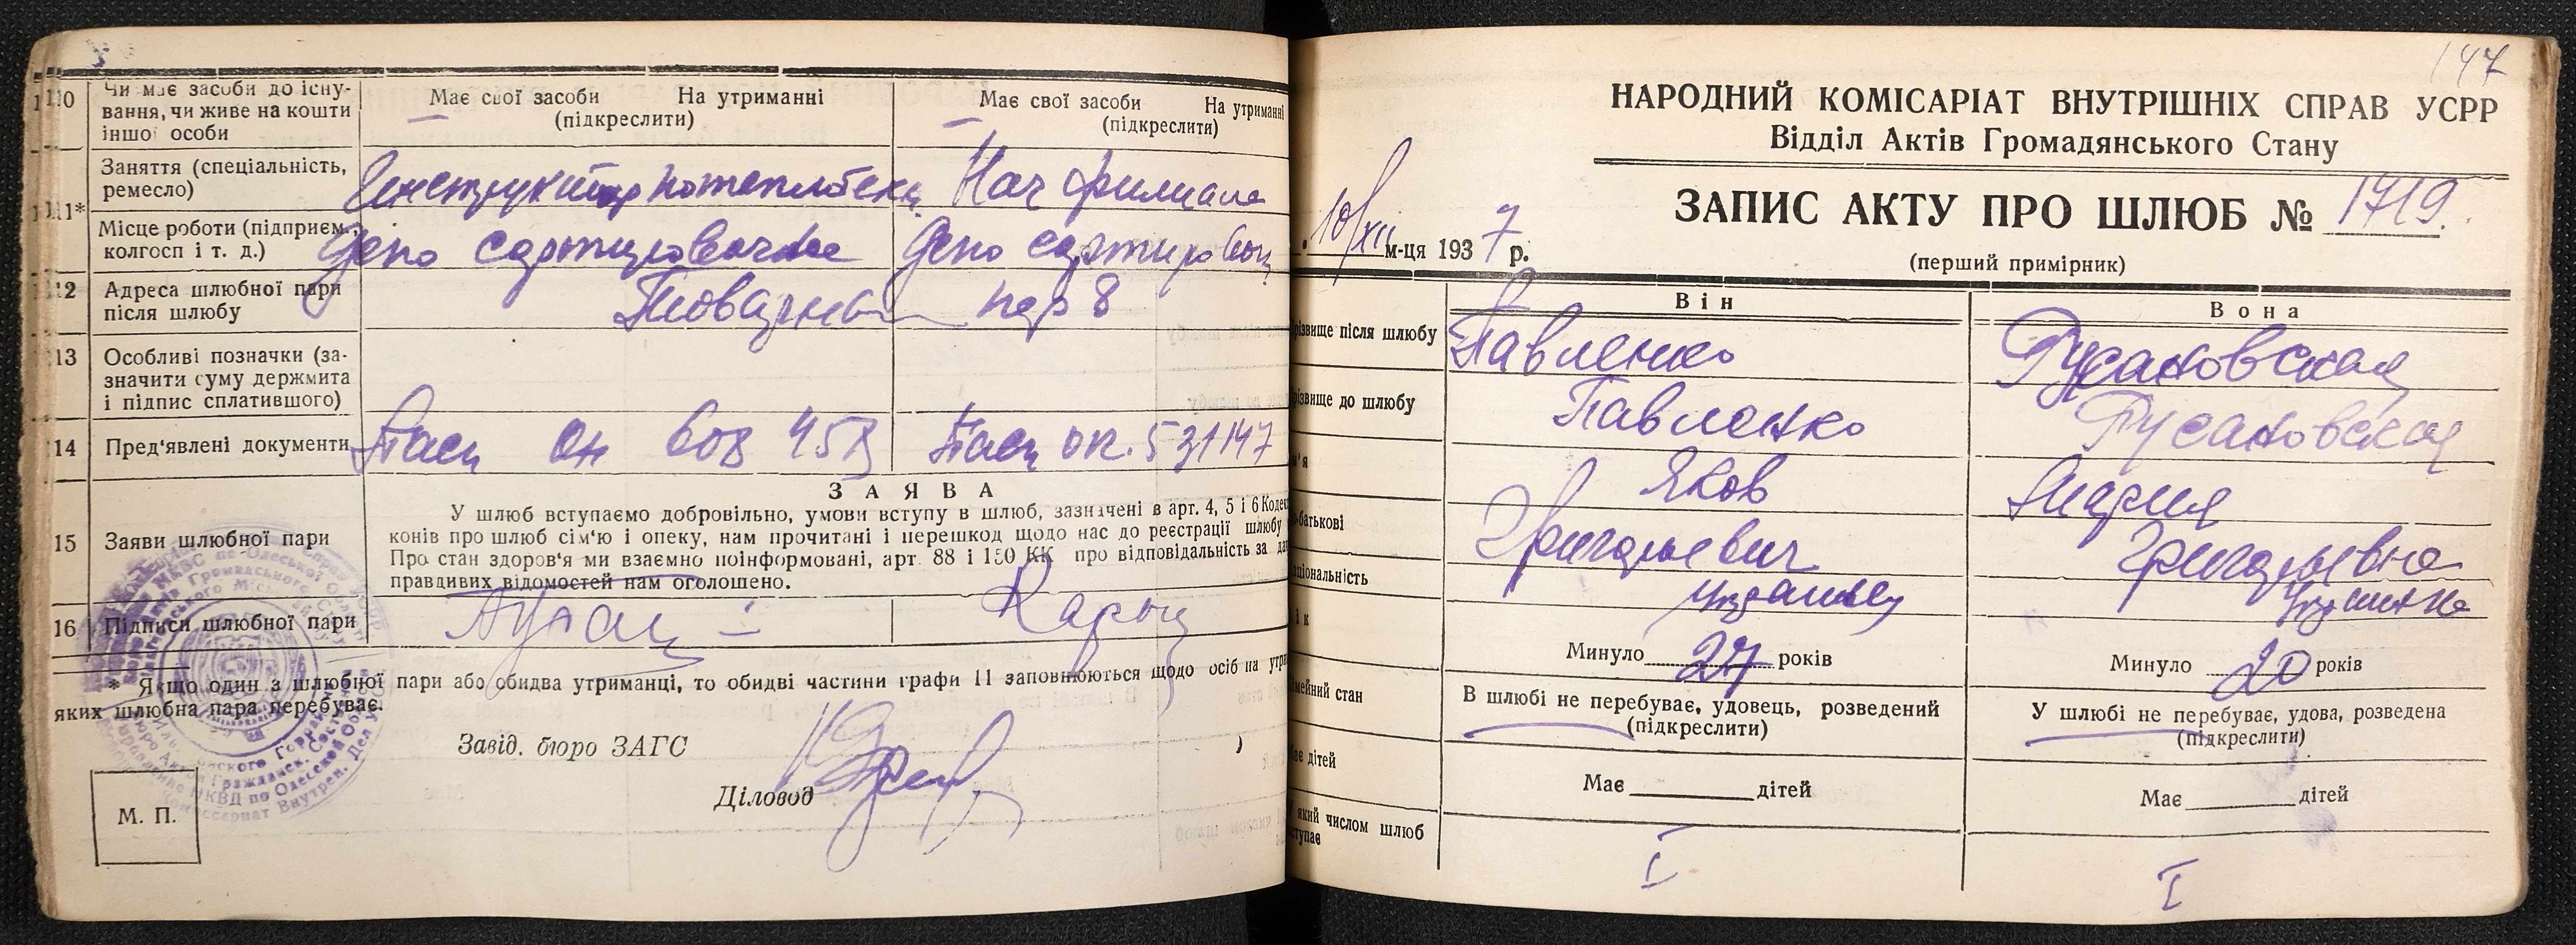 10
Чи має засоби до існу-
вання, чи живе на кошти
іншої особи
Має свої засоби На утриманні
(підкреслити)
Має свої засоби На утриманні
(підкреслити)
11*
Заняття (спеціальність,
ремесло)
Инструктор
Нач филиала
Місце роботи (підприєм.,
колгосп і т. д.)
Депо сортировочная
Депо сортировоч
12
Адреса шлюбної пари
після шлюбу
Товарная пер 8
13
Особливі позначки (за-
значити суму держмита
і підпис сплатившого)
14
Пред'явлені документи
Пасп
Пасп ОК. 531147
З А Я В А
15
Заяви шлюбної пари
У шлюб вступаємо добровільно, умови вступу в шлюб, зазначені в арт. 4, 5 і 6 Кодек
конів про шлюб сім'ю і опеку, нам прочитані і перешкод щодо нас до реєстрації шлюбу
Про стан здоров'я ми взаємно поінформовані, арт. 88 і 150 КК про відповідальність за
правдивих відомостей нам оголошено.
16
Підписи шлюбної пари
* Якщо один з шлюбної пари або обидва утриманці, то обидві частини графи 11 заповнюються щодо осіб на утри
яких шлюбна пара перебуває.
Завід. бюро ЗАГС
Діловод
М. П.
147
НАРОДНИЙ КОМІСАРІАТ ВНУТРІШНІХ СПРАВ УСРР
Відділ Актів Громадянського Стану
ЗАПИС АКТУ ПРО ШЛЮБ № 1719.
10/XII м-ця 1937 р.
(перший примірник)
Він
Вона
різвище після шлюбу
Павленко
Русановская
різвище до шлюбу
Павленко
Русановская
м'я
Яков
Мария
батькові
Григорьевич
Григорьевна
ціональність
Украинка
ік
Минуло 27 років
Минуло 20 років
імейний стан
В шлюбі не перебуває, удовець, розведений
(підкреслити)
У шлюбі не перебуває, удова, розведена
(підкреслити)
Має дітей
Має дітей
який числом шлюб
ступає
I
I